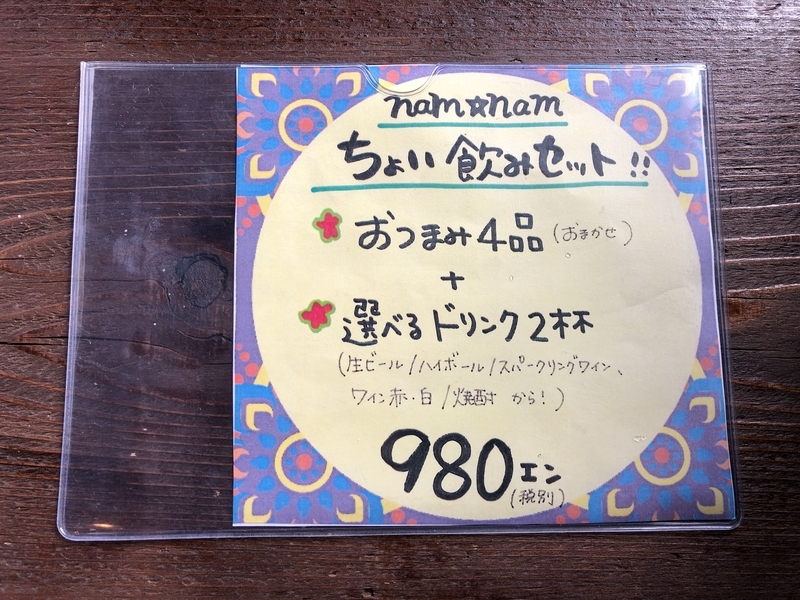 nam☆nam
ちょい飲みセット!!
おつまみ4品(おまかせ)
+
選べるドリンク2杯
(生ビール/ハイボール/スパークリングワイン、
ワイン赤・白/焼酎 から!)
980エン
(税別)